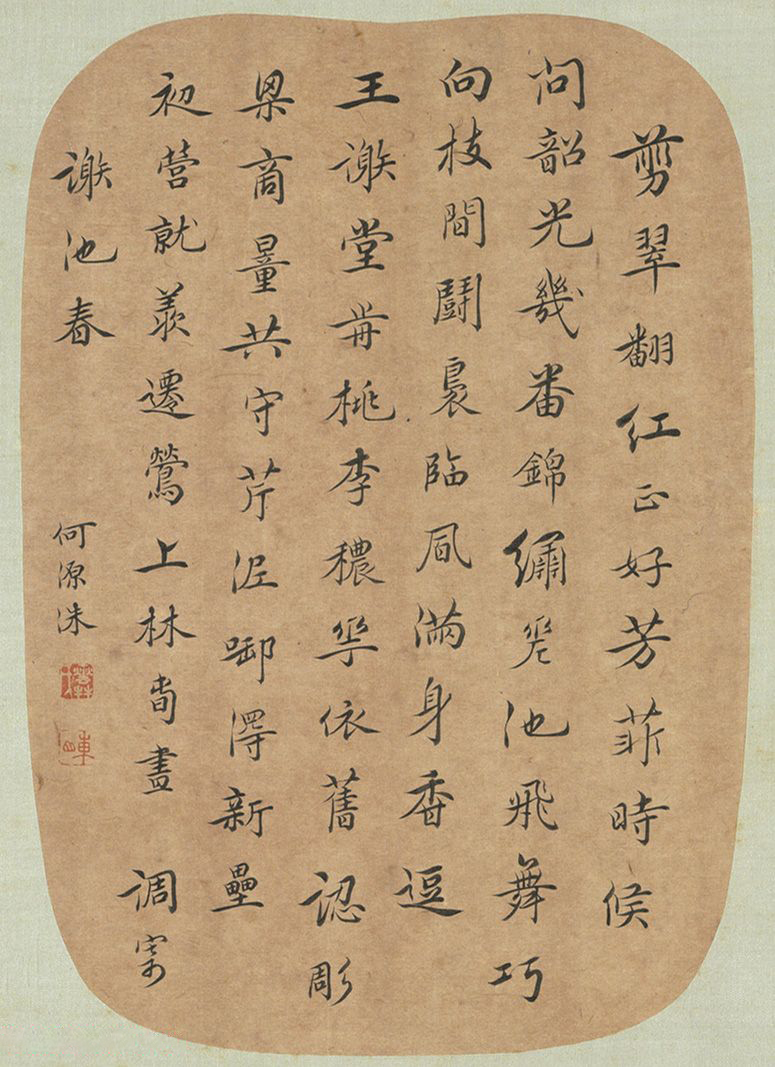 剪翠翻紅正好芳菲時候
問韶光幾番錦繡差池飛舞巧
向枝間鬭裊臨風滿身香逗
王謝堂歬桃李穠華依舊認彫
梁商量共守芹泥啣得新壘
初營就羨遷鶯上林旾晝 調寄
謝池春
何源洙